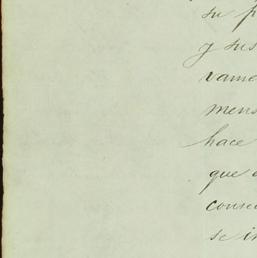 su p
y sus
vame
mens
hace
que
conse
se in